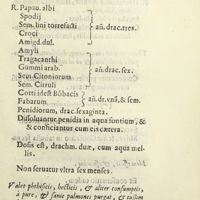 R. Papau. albi
Spodij
Sem. lini torrefacti
Croci
Amigd. dul.
añ. drac. tres.
Amyli
Tragacanthi
Gummi arab.
Sem. Citoniorum
Sem. Citruli
añ. drac. sex.
Cotti idest Bōbacis
Fabarum
añ. dr. vnā, & sem.
Penidiorum, drac. sexaginta.
Dissoluantur penidia in aqua fontium, &
& conficiantur cum eis cætera.
Dosis est, drachm. duæ, cum aqua mel-
lis.
Non seruatur vltra sex menses.
Valet phthisicis, hecticis, & aliter consumptis,
à pure, & sanie pulmones purgat, & tussim